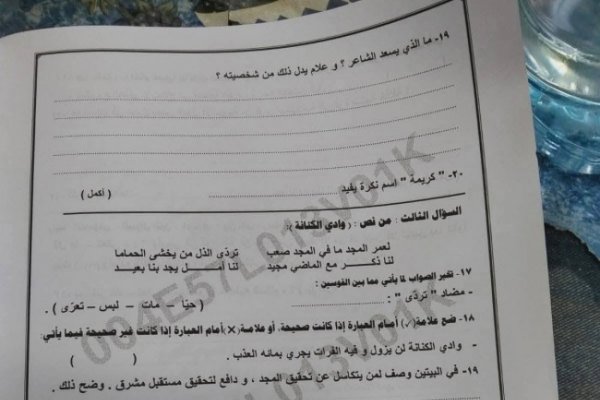 ١٩- ما الذي يسعد الشاعر ؟ و علام يدل ذلك من شخصيته ؟
٢٠- " كريمة " اسم نكرة يفيد ( أكمل )
السؤال الثالث : من نص : ( وادي الكنانة ) :
لعمر المجد ما في المجد صعب تردى الذل من يخشى الحماما
لنا ذكر مع الماضي مجيد لنا أمل يجد بنا بعيد
١٧- تخير الصواب لما يأتي مما بين القوسين :
- مضاد " تردى " : ( حيا – مات – لبس – تعرى ) .
١٨- ضع علامة (✓) أمام العبارة إذا كانت صحيحة، أو علامة (×) أمام العبارة إذا كانت غير صحيحة فيما يأتي:
- وادي الكنانة لن يزول و فيه الفرات يجري بمائه العذب . ( )
١٩- في البيتين وصف لمن يتكاسل عن تحقيق المجد ، و دافع لتحقيق مستقبل مشرق . وضح ذلك .
004E57L013V01K
L013V01K